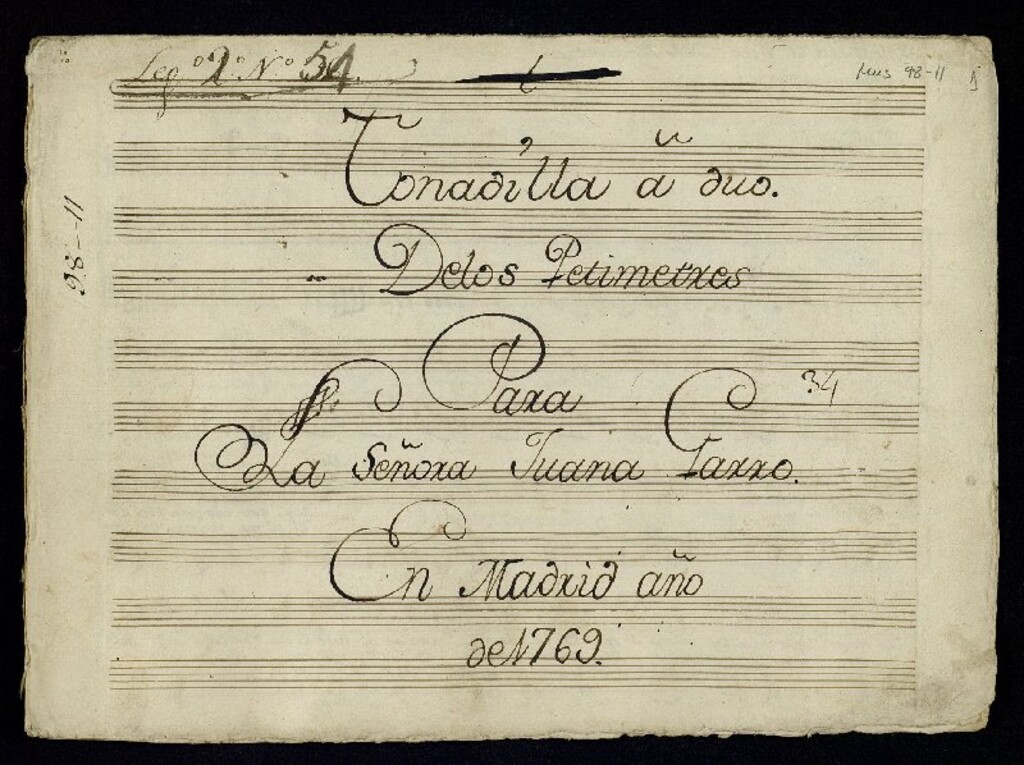 Leg.º 2.º N.º 54.
Mus 98-11
98-11
Tonadilla a duo.
De los Petimetres
Para
34
La Señora Juana Garro.
En Madrid año
de 1769.